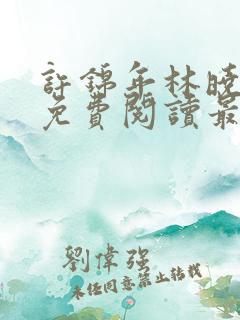 許錦年林曉
免費閱讀最
劉偉強
未經同意禁止轉載